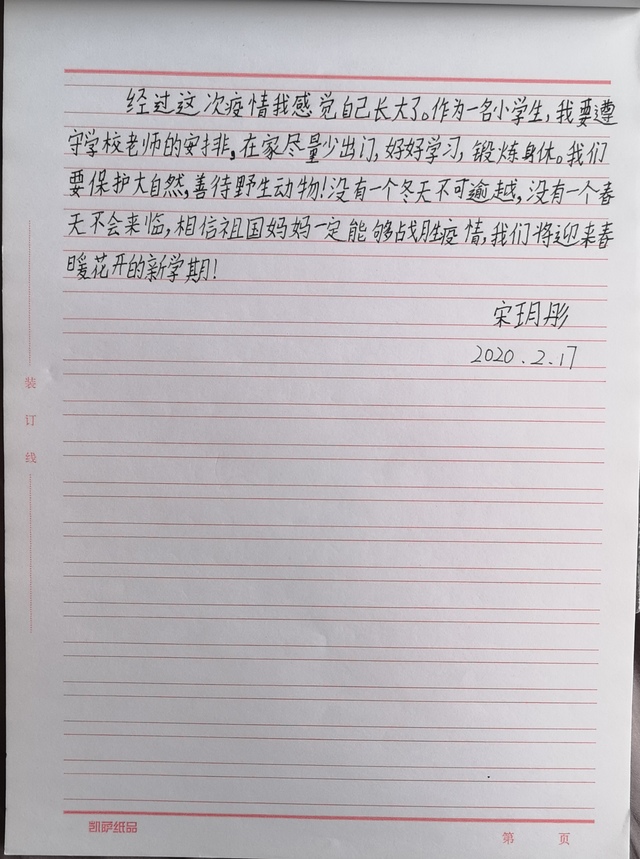 经过这次疫情我感觉自己长大了。作为一名小学生，我要遵
守学校老师的安排，在家尽量少出门，好好学习，锻炼身体。我们
要保护大自然，善待野生动物！没有一个冬天不可逾越，没有一个春
天不会来临，相信祖国妈妈一定能够战胜疫情，我们将迎来春
暖花开的新学期！
宋玥彤
2020.2.17
装
订
线
凯萨纸品
第 页